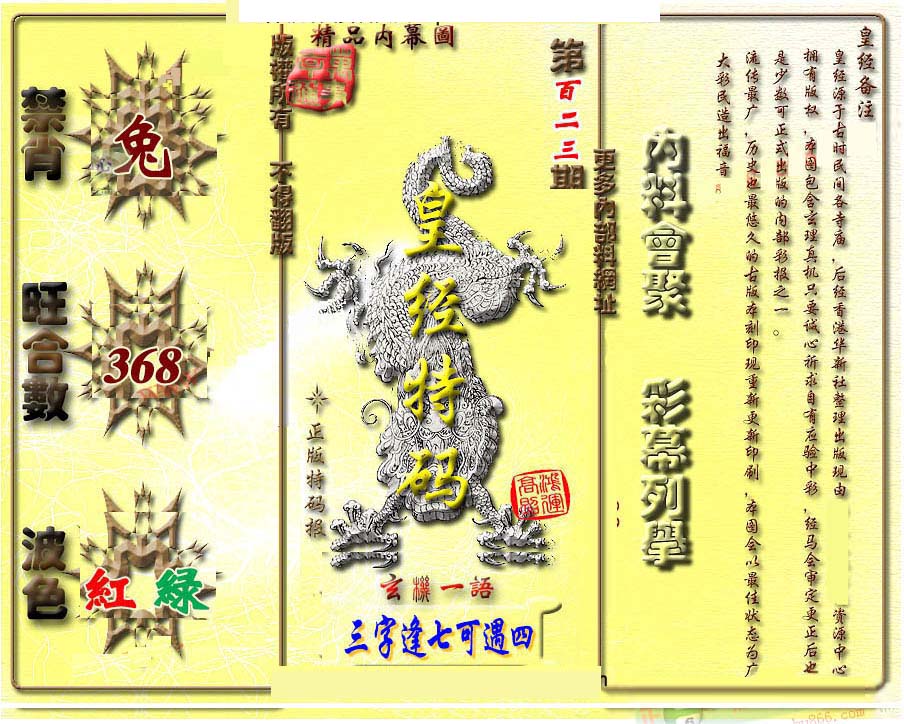 精品内幕圖
版權所有 不得翻版
第百二三期
更多內部料網址
禁肖
兔
旺合數
368
波色
紅 綠
皇经特码
正版特码报
鴻運高照
玄機一語
三字逢七可遇四
內料會聚
彩幕列舉
皇经备注
皇经源于古时民间各寺庙，后经香港华新社整理出版现由 资源中心
拥有版权，本图包含玄理真机只要诚心祈求自有应验中彩，经马会审定更正后也
是少数可正式出版的内部彩报之一。
流传最广，历史也最悠久的古版本刻印现重新更新印刷，本图会以最佳状态为广
大彩民造出福音
866.com